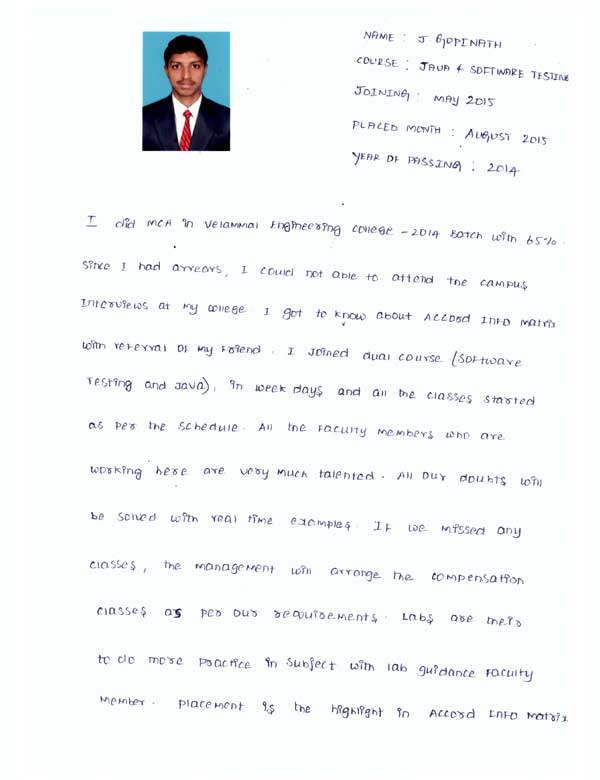 NAME : J GOPINATH
COURSE : JAVA & SOFTWARE TESTING
JOINING : MAY 2015
PLACED MONTH : AUGUST 2015
YEAR OF PASSING : 2014
I did MCA in Velammal Engineering College - 2014 Batch with 65%.
Since I had arrears, I could not able to attend the campus
Interviews at my college. I got to know about Accord Info Matrix
with referral of my Friend. I Joined dual course (Software
Testing and Java), in week days and all the classes started
as per the schedule. All the Faculty members who are
working here are very much talented. All our doubts will
be solved with real time examples. If we missed any
classes, the management will arrange the compensation
classes as per our requirements. Labs are their
to do more Practice in Subject with lab guidance Faculty
Member. Placement is the highlight in Accord Info Matrix